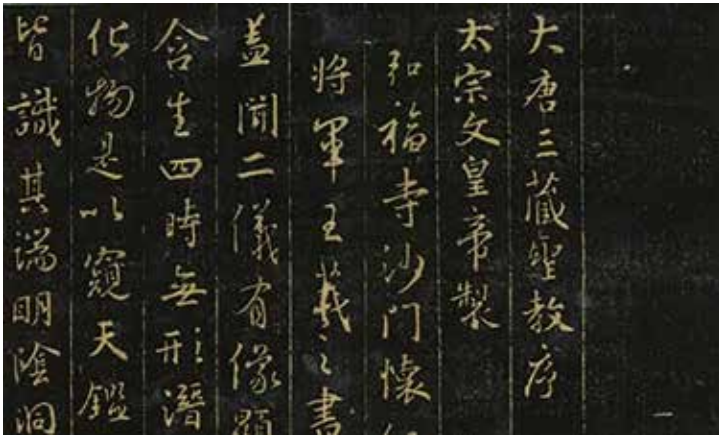 一
大唐三藏聖教序
太宗文皇帝製
弘福寺沙門懷仁
將軍王羲之書
盖聞二儀有像顯
含生四時無形潛
化物是以窺天鑑
皆識其端明陰洞